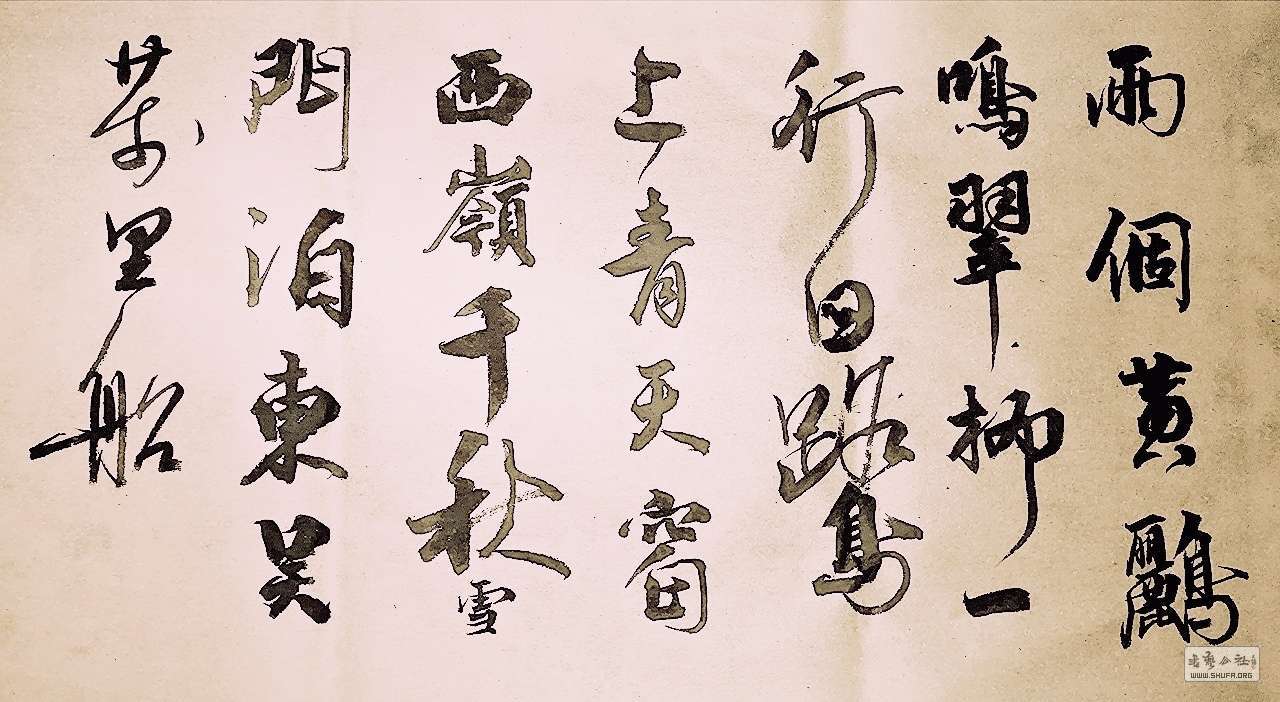 兩個黃鸝
鳴翠柳一
行白鷺
上青天窗
西嶺千秋雪
門泊東吳
萬里船
WWW.SHUFA.ORG